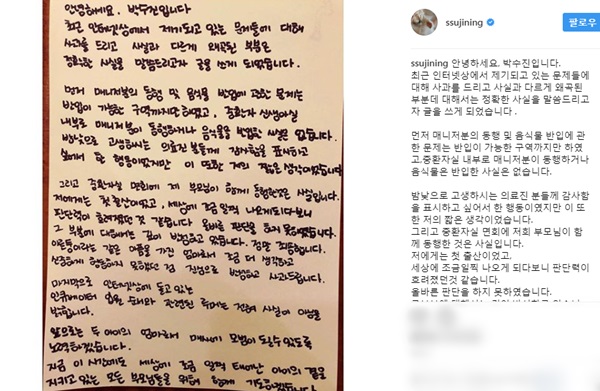 안녕하세요. 박수진입니다
최근 인터넷상에서 제기되고 있는 문제들에 대해
사과를 드리고 사실과 다르게 왜곡된 부분은
정확한 사실을 말씀드리고자 글을 쓰게 되었습니다.
먼저 매니저분의 동행 및 음식물 반입에 관한 문제는
반입이 가능한 구역까지만 하였고, 중환자실
내부로 매니저분이 동행하거나 음식물을 반입한 사실은 없습니다.
밤낮으로 고생하시는 의료진 분들께 감사함을 표시하고
싶어서 한 행동이었지만 이 또한 저의 짧은 생각이었습니다
그리고 중환자실 면회에 저희 부모님이 함께 동행한것은 사실입니다.
저에게는 첫 출산이었고, 세상에 조금 일찍 나오게되다보니
판단력이 흐려졌던 것 같습니다. 올바른 판단을 하지 못하였습니다
마지막으로 인터넷상에 돌고 있는
인큐베이터 입원 순서와 관련된 루머는 전혀 사실이 아님을
밝힙니다.
앞으로는 두 아이의 엄마로서 매사에 모범이 될수 있도록
노력하겠습니다.
지금 이 시간에도 세상에 조금 일찍 태어난 아이의 곁을
지키고 있는 모든 부모님들을 위해 함께 기도하겠습니다
ssujining
팔로우
ssujining 안녕하세요. 박수진입니다.
최근 인터넷상에서 제기되고 있는 문제들에
대해 사과를 드리고 사실과 다르게 왜곡된
부분데 대해서는 정확한 사실을 말씀드리고
자 글을 쓰게 되었습니다 .
먼저 매니저분의 동행 및 음식물 반입에 관
한 문제는 반입이 가능한 구역까지만 하였
고,중환자실 내부로 매니저분이 동행하거나
음식물은 반입한 사실은 없습니다.
밤낮으로 고생하시는 의료진 분들께 감사함
을 표시하고 싶어서 한 행동이였지만 이 또
한 저의 짧은 생각이었습니다.
그리고 중환자실 면회에 저희 부모님이 함
께 동행한 것은 사실입니다.
저에게는 첫 출산이었고,
세상에 조금일찍 나오게 되다보니 판단력이
흐려졌던것 같습니다.
올바른 판단을 하지 못하였습니다.